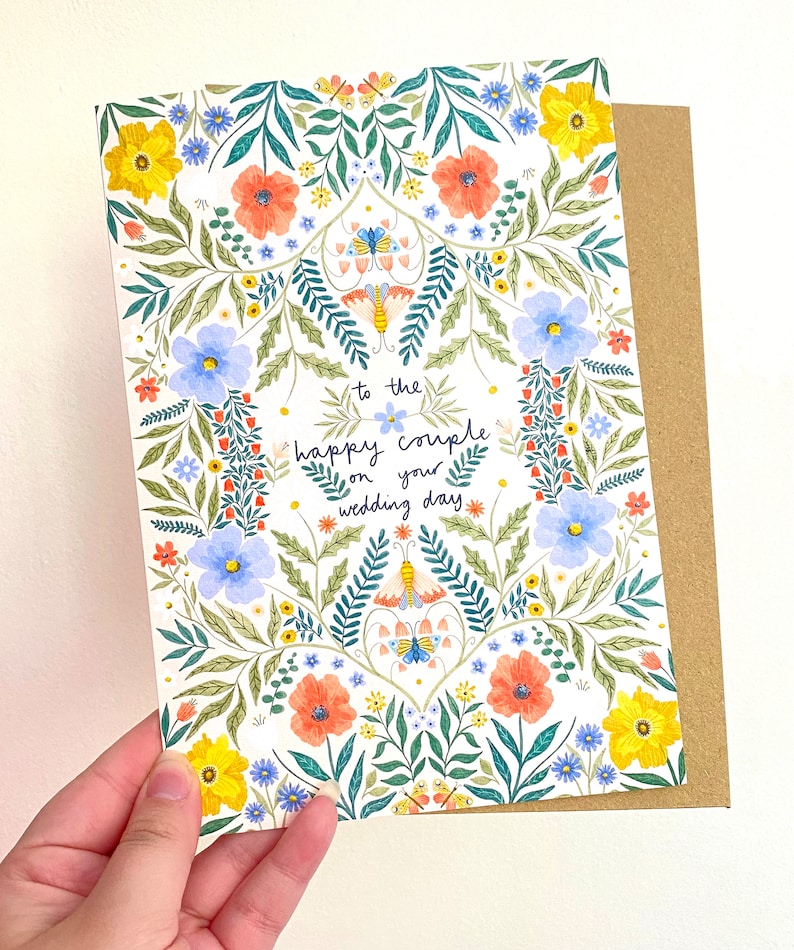 to the
happy couple
on your
wedding day